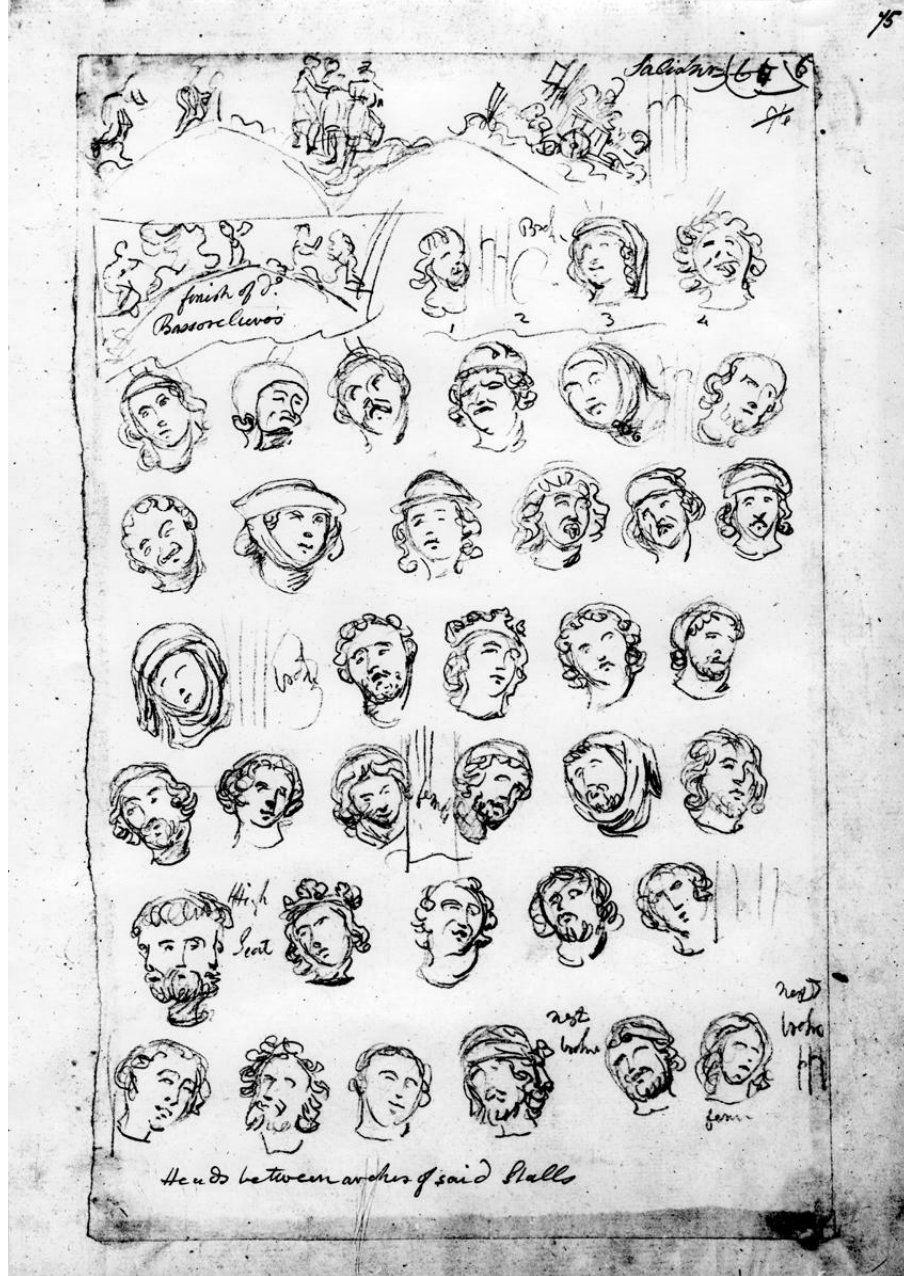 75
finish of do
Bassorelievos
1 2 3 4
High
Seat
next
broke
next
broke
fem
Heads between arches of said Stalls